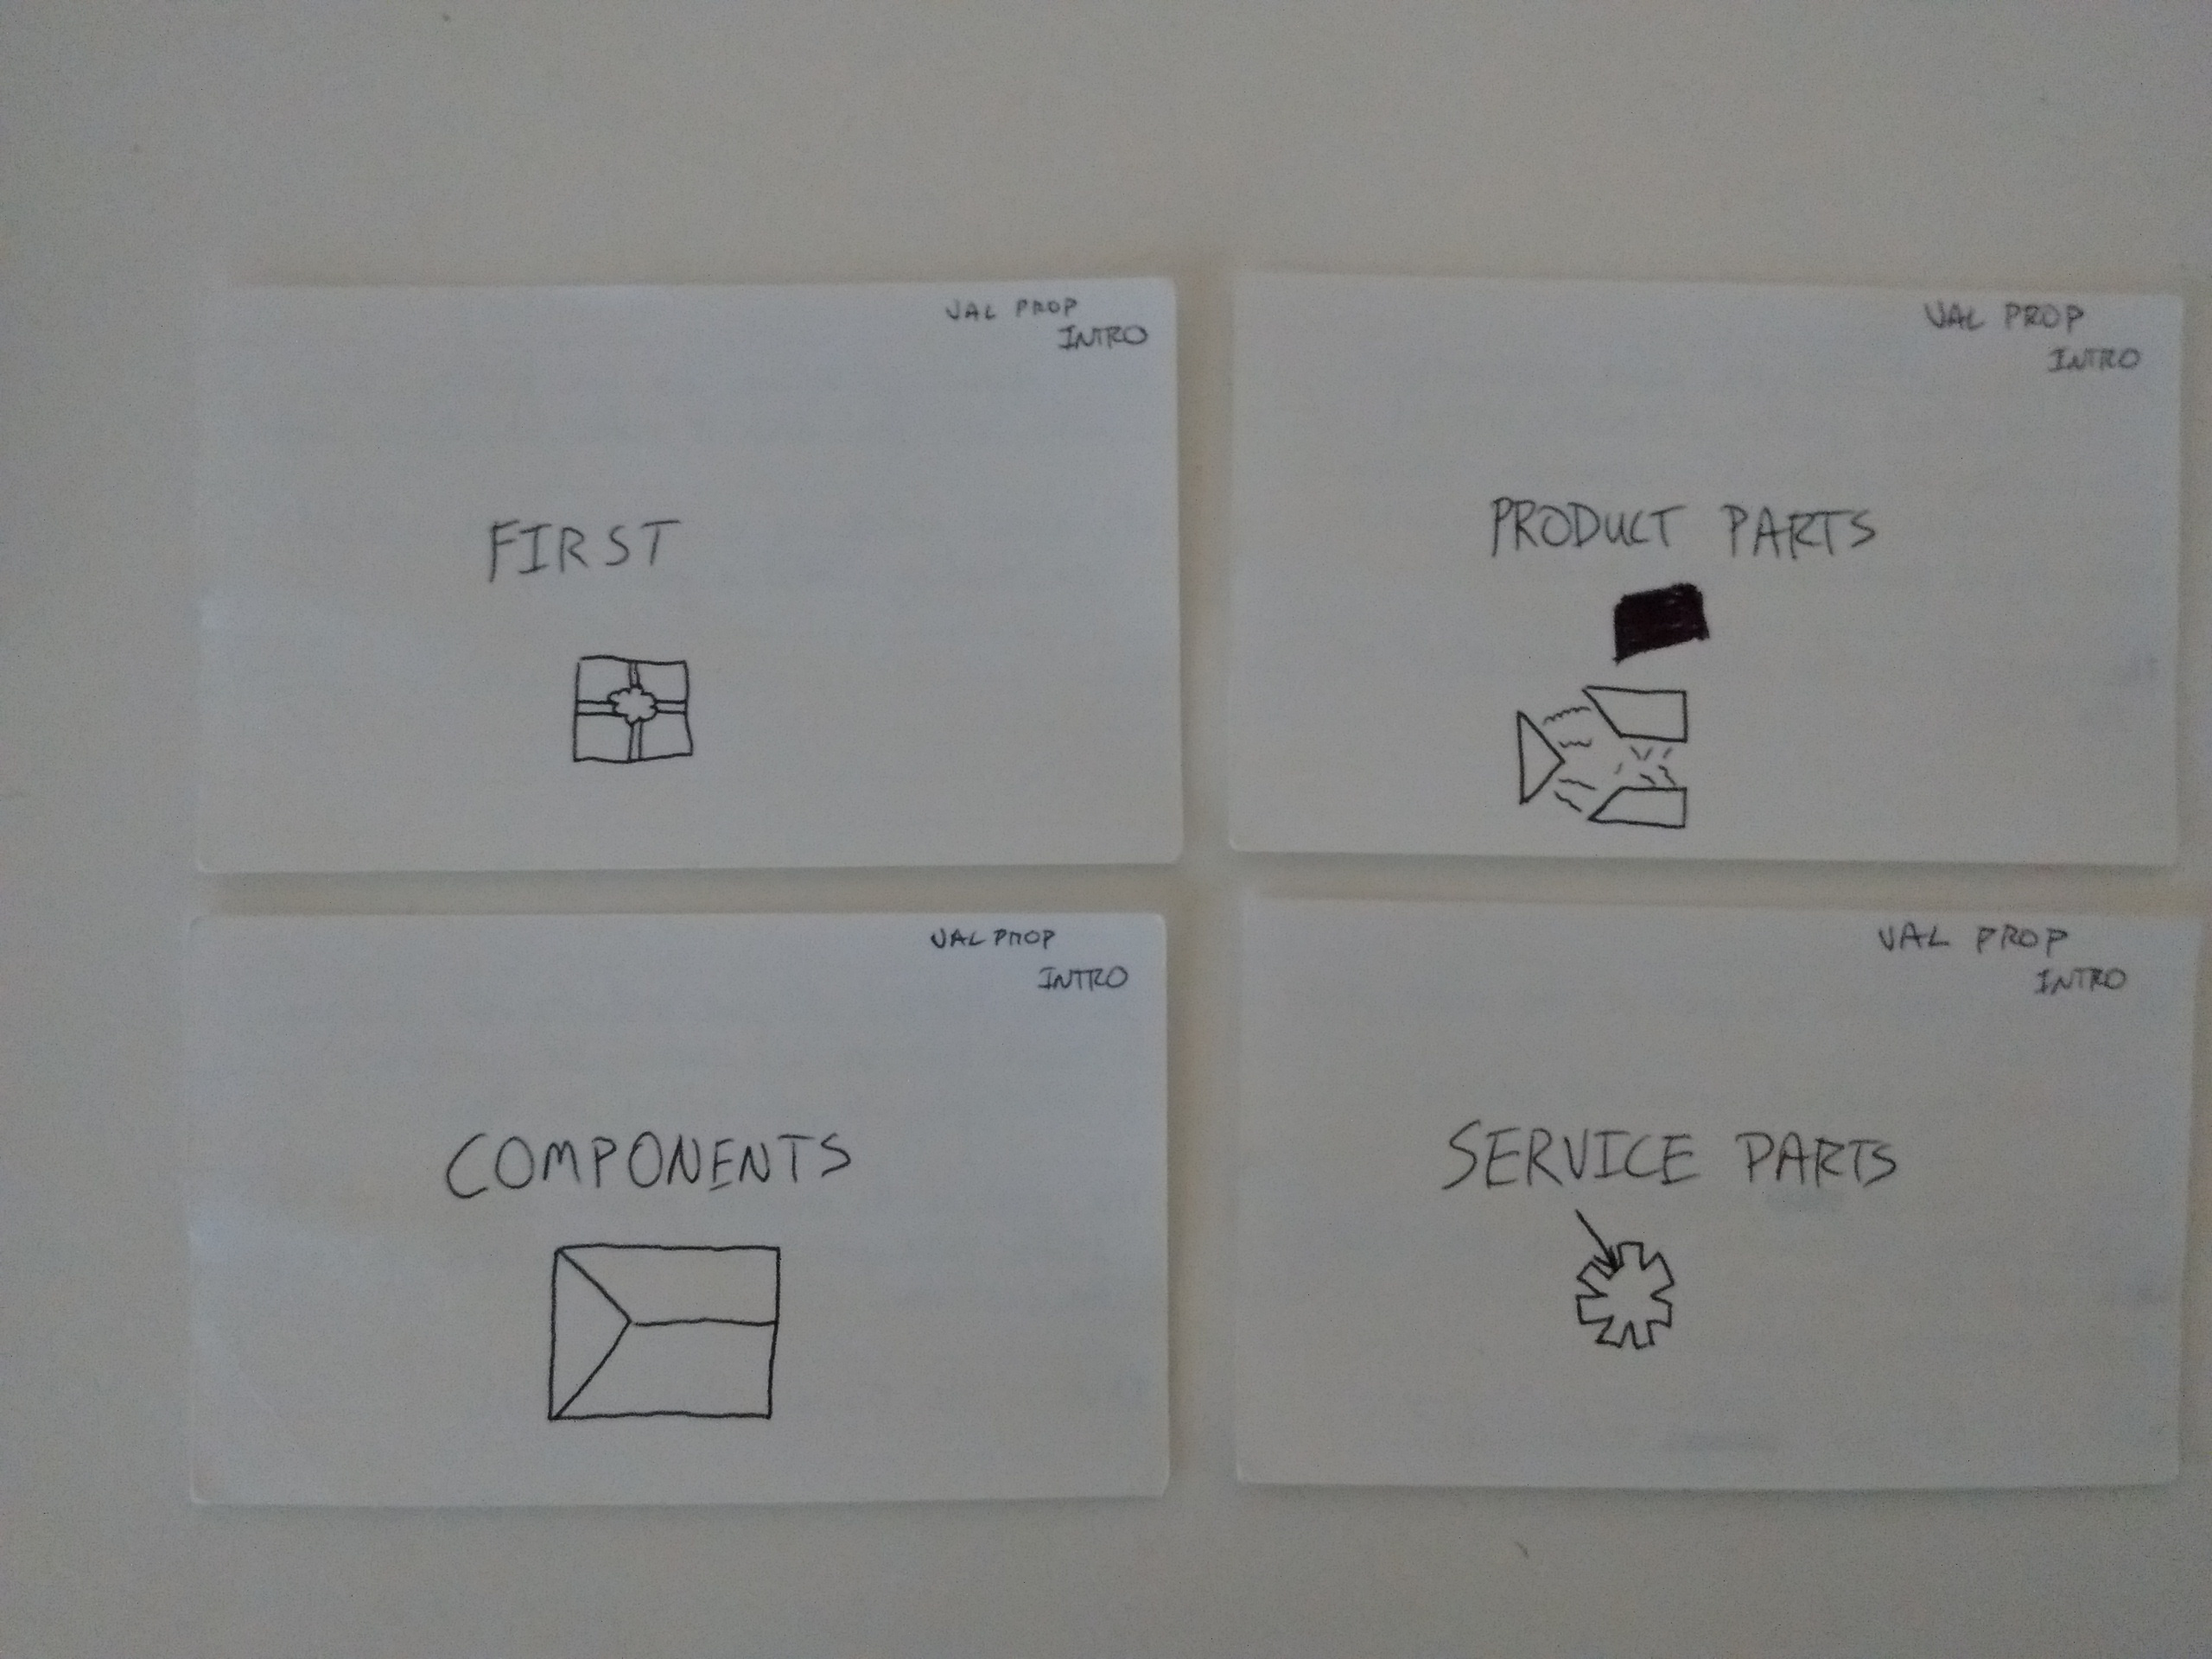 VAL PROP
INTRO
FIRST
VAL PROP
INTRO
PRODUCT PARTS
VAL PROP
INTRO
COMPONENTS
VAL PROP
INTRO
SERVICE PARTS